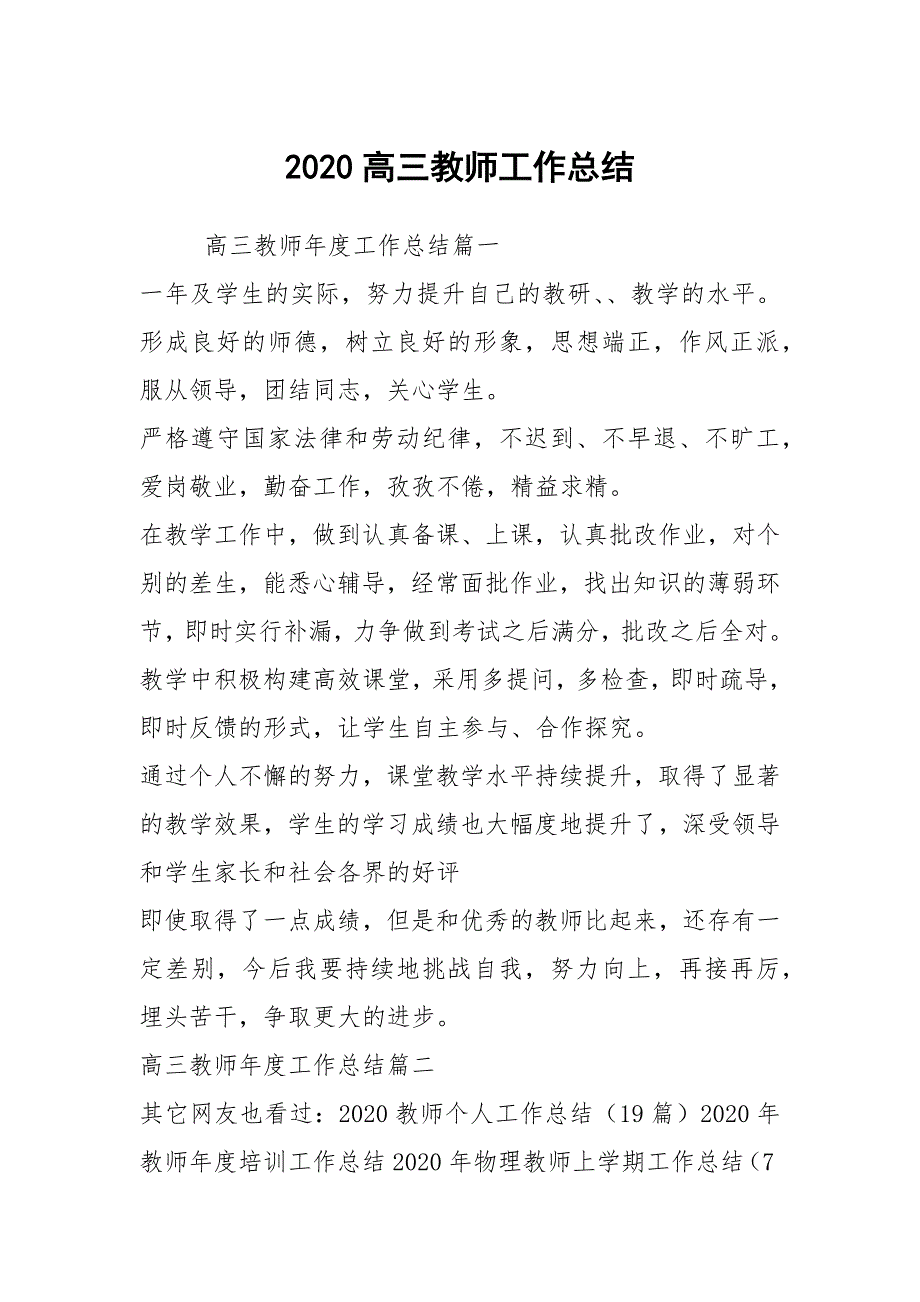 2020高三教师工作总结
高三教师年度工作总结篇一
一年及学生的实际，努力提升自己的教研、、教学的水平。
形成良好的师德，树立良好的形象，思想端正，作风正派，
服从领导，团结同志，关心学生。
严格遵守国家法律和劳动纪律，不迟到、不早退、不旷工，
爱岗敬业，勤奋工作，孜孜不倦，精益求精。
在教学工作中，做到认真备课、上课，认真批改作业，对个
别的差生，能悉心辅导，经常面批作业，找出知识的薄弱环
节，即时实行补漏，力争做到考试之后满分，批改之后全对。
教学中积极构建高效课堂，采用多提问，多检查，即时疏导，
即时反馈的形式，让学生自主参与、合作探究。
通过个人不懈的努力，课堂教学水平持续提升，取得了显著
的教学效果，学生的学习成绩也大幅度地提升了，深受领导
和学生家长和社会各界的好评
即使取得了一点成绩，但是和优秀的教师比起来，还存有一
定差别，今后我要持续地挑战自我，努力向上，再接再厉，
埋头苦干，争取更大的进步。
高三教师年度工作总结篇二
其它网友也看过：2020教师个人工作总结（19篇）2020年
教师年度培训工作总结2020年物理教师上学期工作总结（7